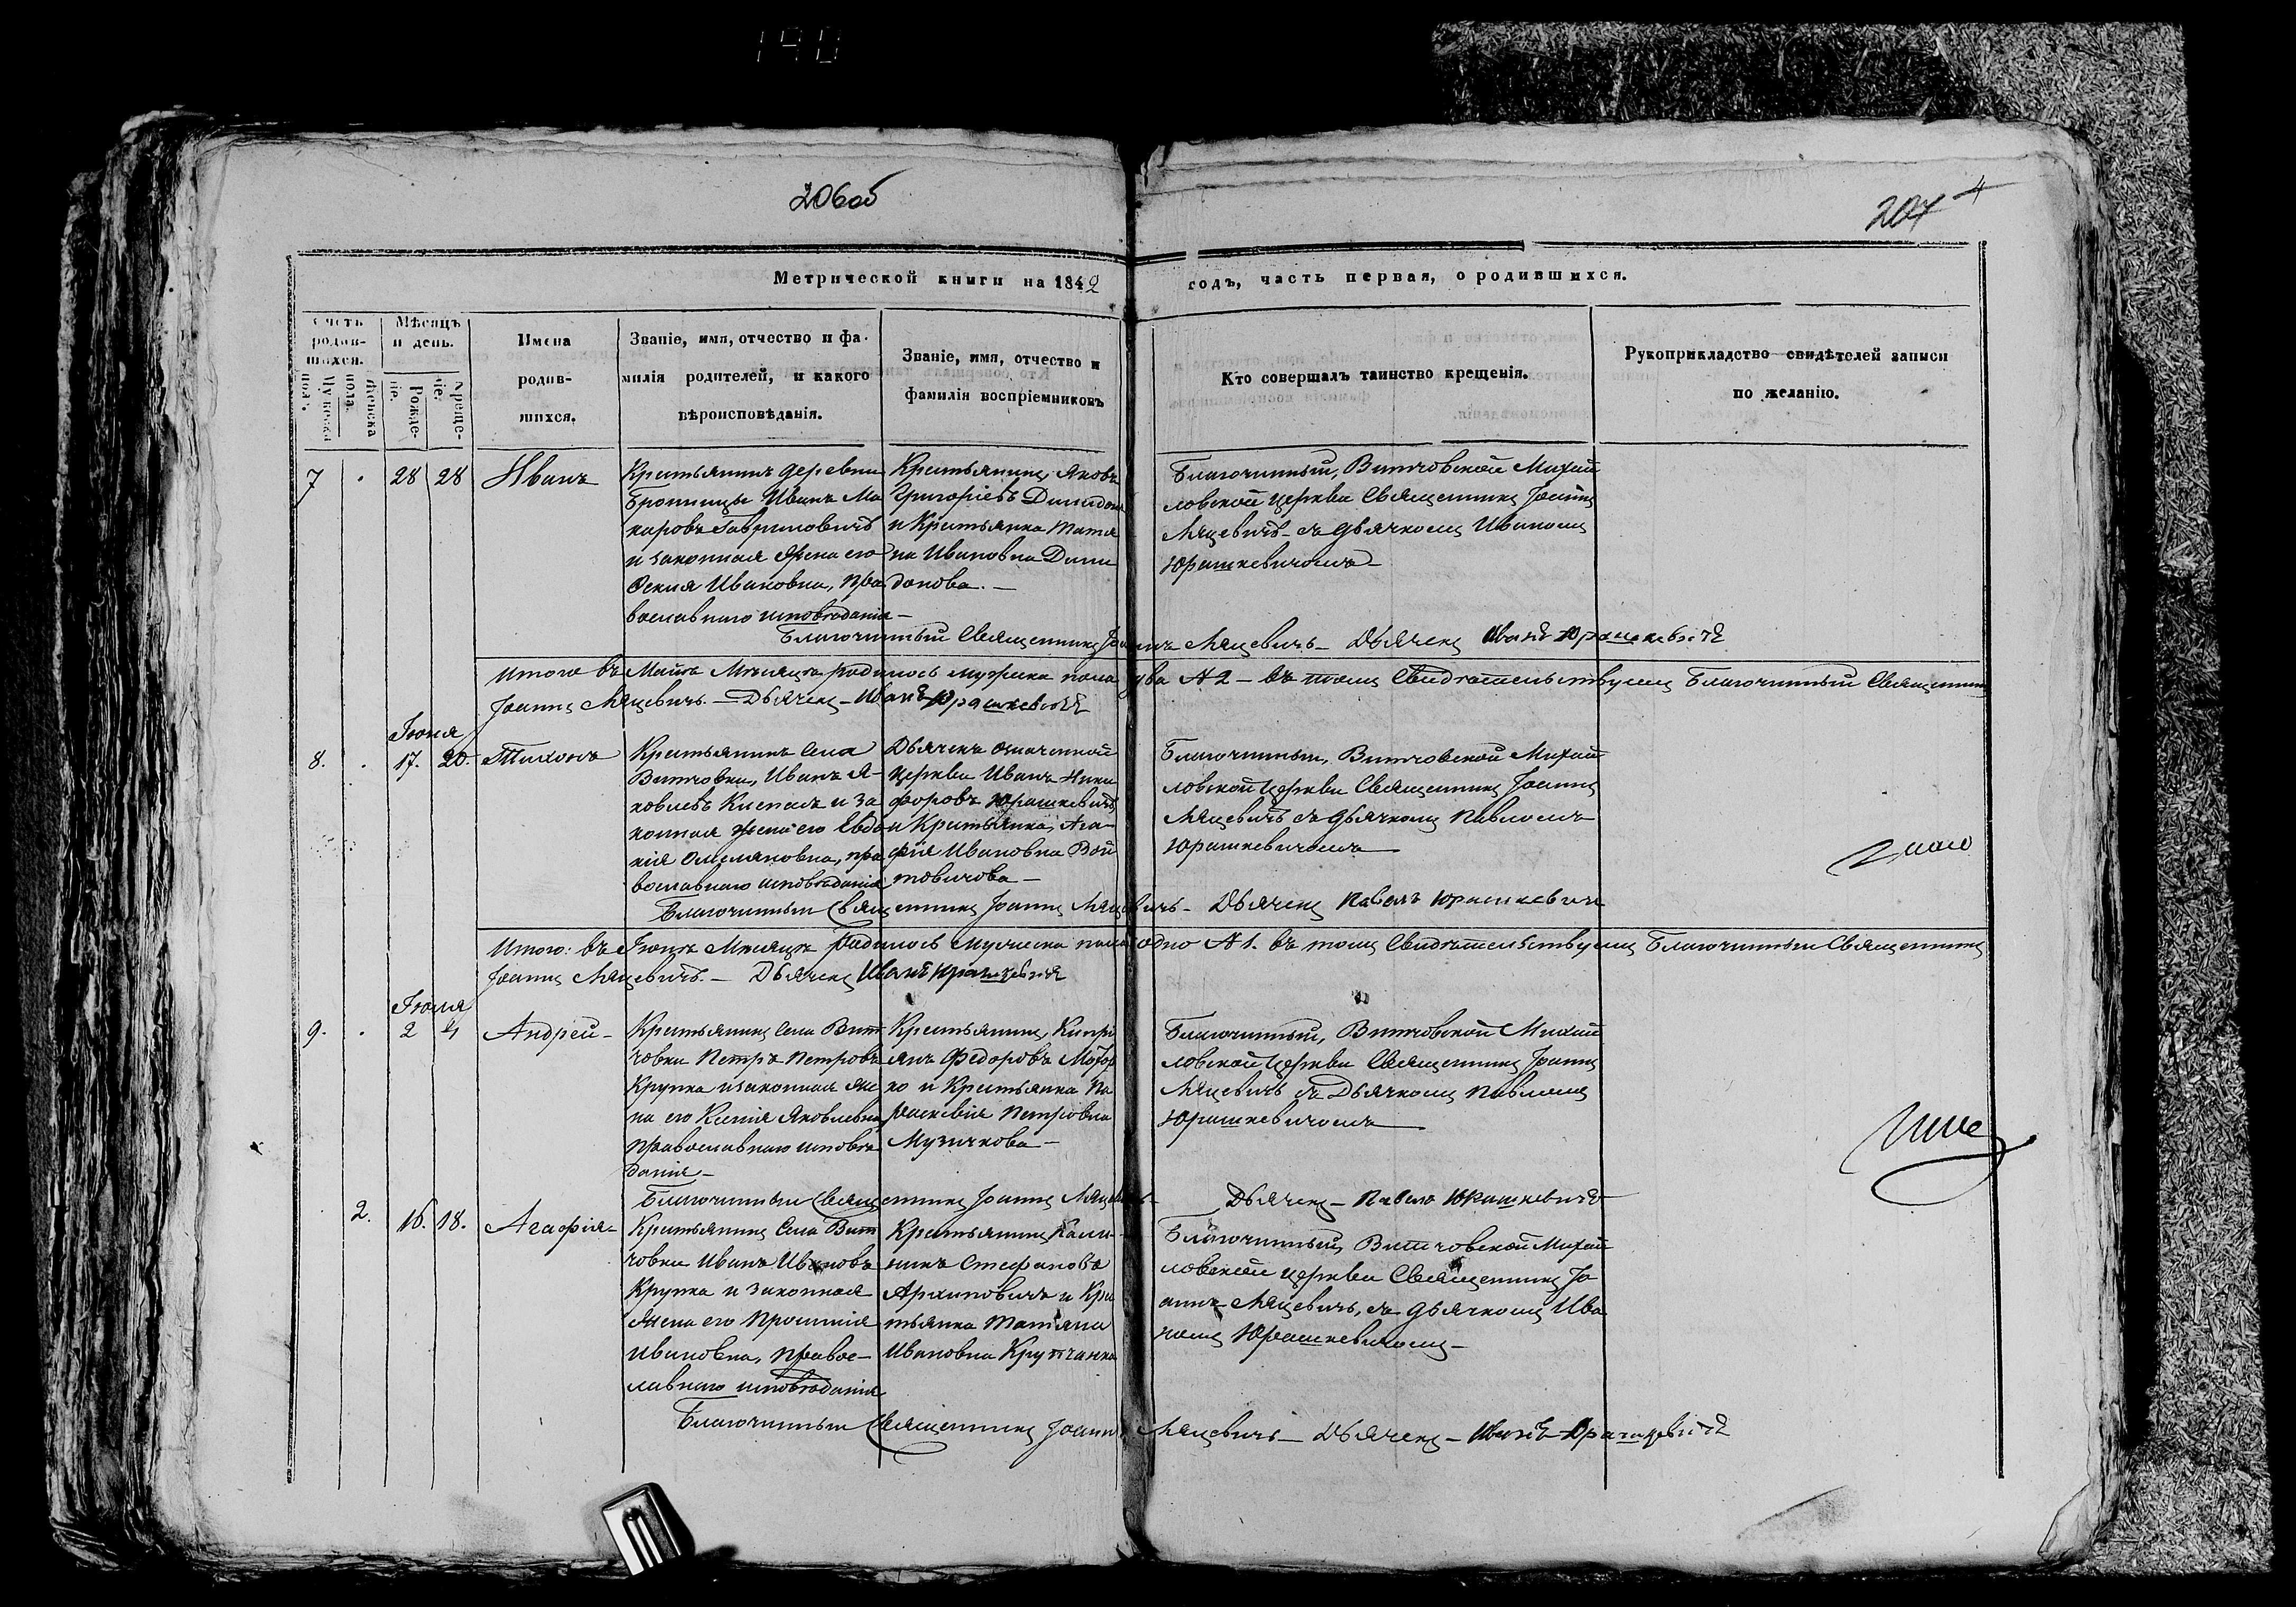 190
206об
207 4
Метрической книги на 1842 годъ, часть первая, о родившихся.
Счетъ родив-шихся.
Мужеска пола.
Женска пола.
Мѣсяцъ и день.
Рожденіе.
Крещеніе.
Имена
родив-
шихся.
Званіе, имя, отчество и фа-
милія родителей, и какого
вѣроисповѣданія.
Званіе, имя, отчество и
фамилія воспріемниковъ
Кто совершалъ таинство крещенія.
Рукоприкладство свидѣтелей записи
по желанію.
7 . 28 28 Иванъ
Крестьянинъ деревни
Бротницы Иванъ Ма
каровъ Гавриловичъ
и законная жена его
Ивановна, пра
вославнаго исповѣданія
Крестьянинъ, Яковъ
Григоріевъ
и Крестьянка Татья
на Ивановна Дими
донова. —
Благочинный, Витчовской Михай
ловской церкви Священникъ Іоаннъ
Мацевичъ съ дьячкомъ Иваномъ
Юрашкевичомъ
Благочинный Священникъ Іоаннъ Мацевичъ — Дьячекъ Иванъ Юрашкевичъ
Итого въ Маѣ Мѣсяцѣ родилось мужеска пола два № 2 — въ томъ Свидѣтельствуемъ Благочинный Священникъ
Іоаннъ Мацевичъ. — Дьячекъ — Иванъ Юрашкевичъ
Іюня
8. . 17. 20. Тихонъ
Крестьянинъ Села
Витчовки, Иванъ Я-
ковлевъ и за
конная жена его Евдо
кія Омеляновна, пра
вославнаго исповѣданія
Дьячекъ означенной
церкви Иванъ Ники
форовъ Юрашкевичъ
и Крестьянка, Ага-
фія Ивановна Вой
товичова —
Благочинный, Витчовской Михай
ловской церкви Священникъ Іоаннъ
Мацевичъ съ дьячкомъ Павломъ
Юрашкевичомъ
Благочинный Священникъ Іоаннъ Мацевичъ — Дьячекъ Павелъ Юрашкевичъ
Итого: въ Іюнѣ Мѣсяцѣ родилось мужеска пола одно № 1. въ томъ Свидѣтельствуемъ Благочинный Священникъ
Іоаннъ Мацевичъ. — Дьячекъ Иванъ Юрашкевичъ
Іюля
9. . 2 4 Андрей —
Крестьянинъ Села Вит
човки Петръ Петровъ
Крупка и законная же
на его Ксенія Яковлевна
православнаго исповѣ
данія —
Крестьянинъ, Кипрі
янъ Федоровъ
ко и Крестьянка Па
раскевія Петровна
Музычкова —
Благочинный, Витчовской Михай
ловской церкви Священникъ Іоаннъ
Мацевичъ съ Дьячкомъ Павломъ
Юрашкевичомъ
Благочинный Священникъ Іоаннъ Мацевичъ — Дьячекъ — Павелъ Юрашкевичъ
2. 16. 18. Агафія —
Крестьянинъ Села Вит
човки Иванъ Ивановъ
Крупка и законная
жена его
Ивановна, правос-
лавнаго исповѣданія
Крестьянинъ Кали-
никъ Стефановъ
Архиповичъ и Кре
стьянка Татіана
Ивановна Крупчанка
Благочинный, Витчовской Михай
ловской церкви Священникъ Іо
аннъ Мацевичъ, съ дьячкомъ Ива
номъ Юрашкевичомъ —
Благочинный Священникъ Іоаннъ Мацевичъ — Дьячекъ — Иванъ Юрашкевичъ